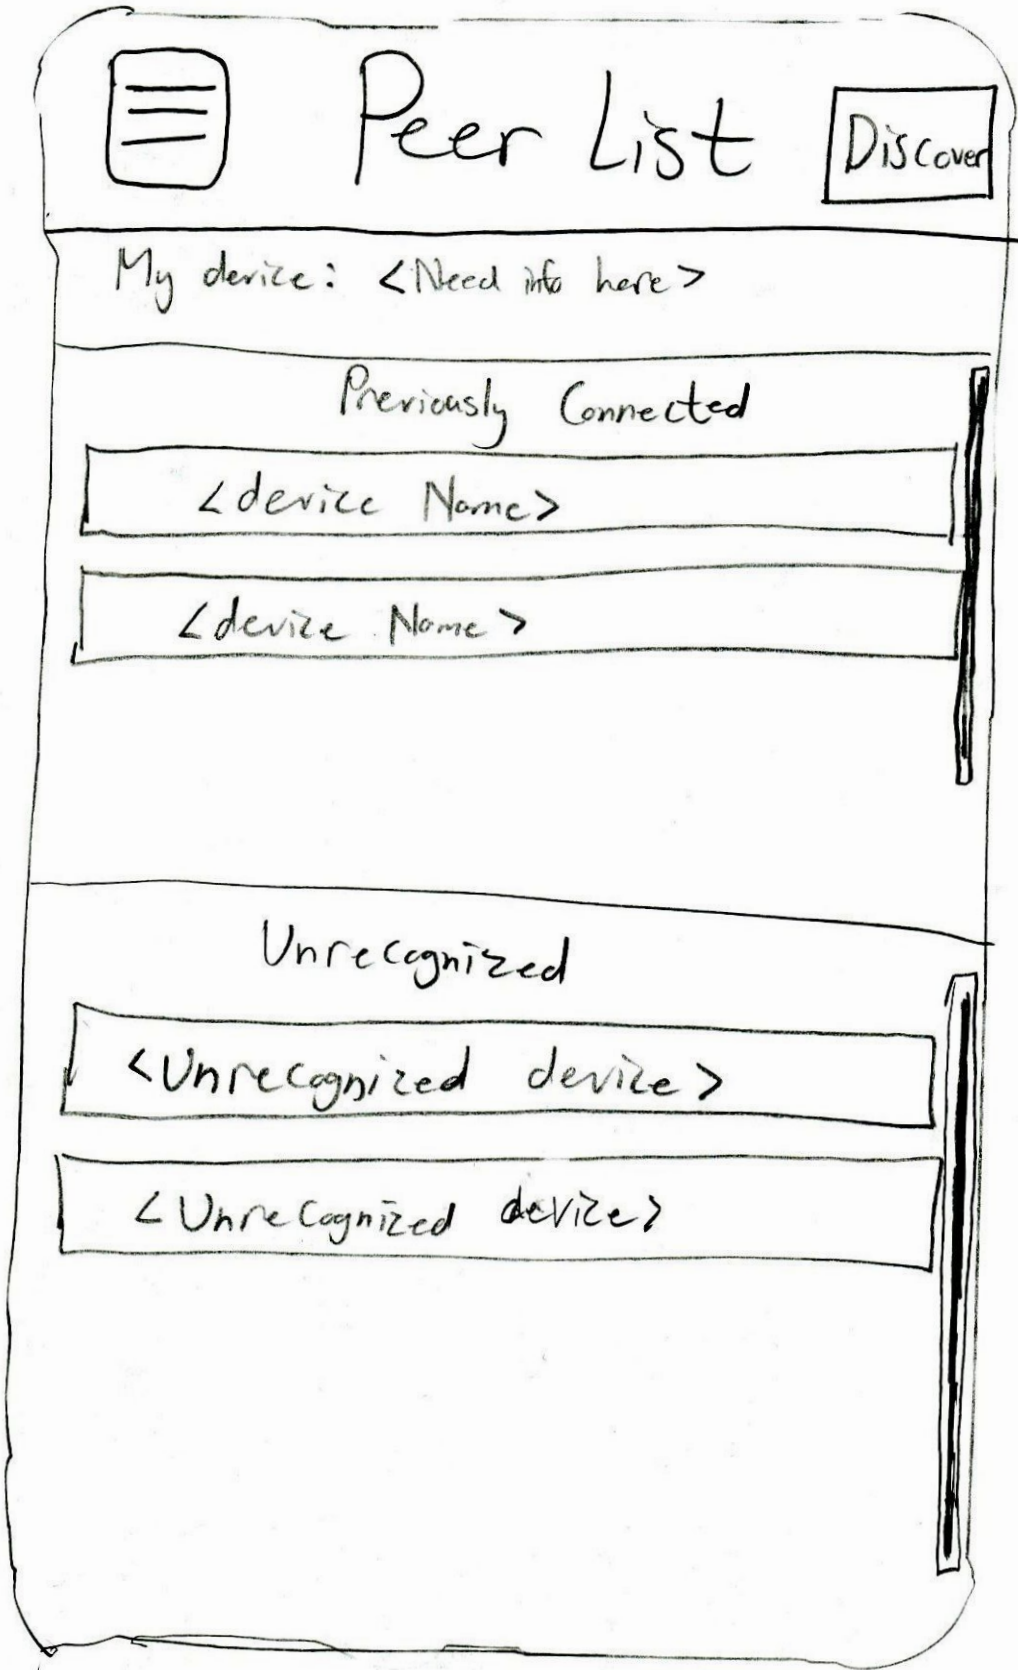 Peer List
Discover
My device: <Need info here>
Previously Connected
<device Name>
<device Name>
Unrecognized
<Unrecognized device>
<Unrecognized device>